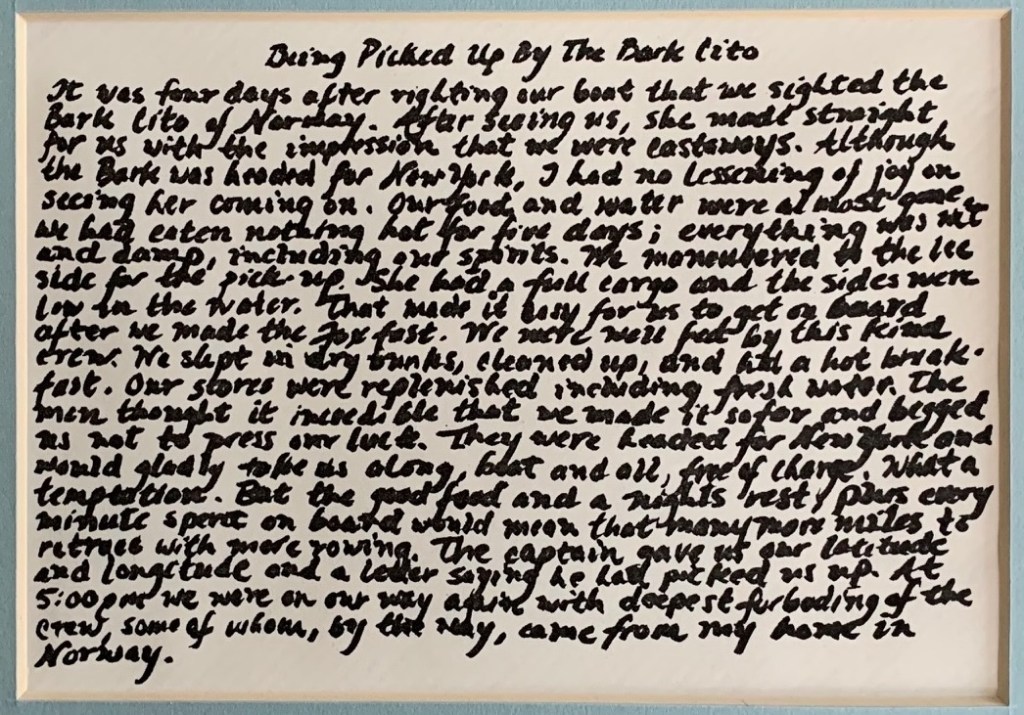 Being Picked Up By The Bark Cito
It was four days after righting our boat that we sighted the
Bark Cito of Norway. After seeing us, she made straight
for us with the impression that we were castaways. Although
the Bark was headed for New York, I had no lessening of joy on
seeing her coming on. Our food and water were almost gone,
we had eaten nothing hot for five days; everything was wet
and damp, including our spirits. We maneuvered to the lee
side for the pick up. She had a full cargo and the sides were
low in the water. That made it easy for us to get on board
after we made the Fox fast. We were well fed by this kind
crew. We slept in dry bunks, cleaned up, and had a hot break-
fast. Our stores were replenished including fresh water. The
men thought it incredible that we made it so far and begged
us not to press our luck. They were headed for New York and
would gladly take us along, boat and all, free of charge. What a
temptation. But the good food and a nights rest, plus every
minute spent on board would mean that many more miles to
retrace with more rowing. The captain gave us our latitude
and longitude and a letter saying he had picked us up. At
5:00 pm we were on our way again with deepest forboding of the
crew, some of whom, by the way, came from my home in
Norway.